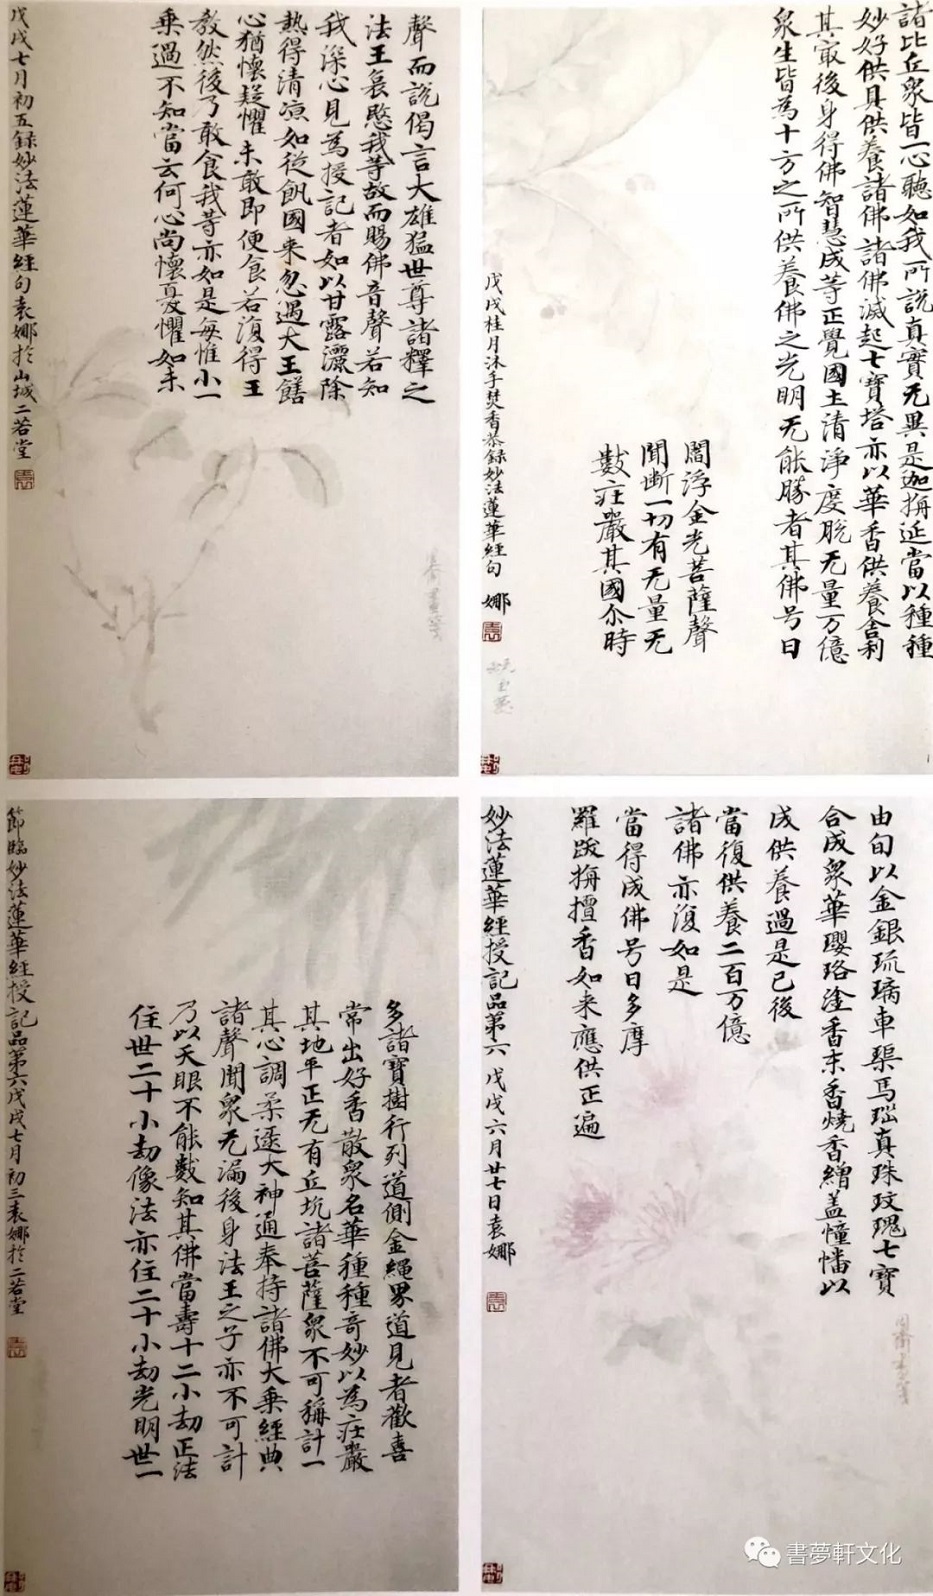 諸比丘衆皆一心聽如我所說真實无異是迦旃延當以種種
妙好供具供養諸佛諸佛滅起七寶塔亦以華香供養舍利
其㝡後身得佛智慧成等正覺國土清淨度脫无量万億
衆生皆為十方之所供養佛之光明无能勝者其佛号日
閻浮金光菩薩聲
聞斷一切有无量无
數莊嚴其國尒時
戊戌桂月沐手焚香恭録妙法蓮華經句 娜
聲而說偈言大雄猛世尊諸釋之
法王哀愍我等故而賜佛音聲若知
我深心見為授記者如以甘露灑除
熱得清涼如從飢國来忽遇大王饍
心猶懷疑懼未敢即便食若復得王
教然後乃敢食我等亦如是每惟小一
乗過不知當云何心尚懷憂懼如未
戊戌七月初五録妙法蓮華經句袁娜於山城二若堂
由旬以金銀琉璃車渠馬瑙真珠玫瑰七寶
合成衆華瓔珞塗香末香燒香繒盖幢幡以
戌供養過是已後
當復供養二百万億
諸佛亦復如是
當得成佛号日多摩
羅跋旃檀香如来應供正遍
妙法蓮華經授記品第六 戊戌六月廿七日袁娜
多諸寶樹行列道側金繩界道見者歡喜
常出好香散衆名華種種奇妙以為莊嚴
其地平正无有丘坑諸菩薩衆不可稱計一
其心調柔逮大神通奉持諸佛大乗經典
諸聲聞衆无漏後身法王之子亦不可計
乃以天眼不能數知其佛當壽十二小劫正法
住世二十小劫像法亦住二十小劫光明世一
節臨妙法蓮華經授記品第六戊戌七月初三袁娜於二若堂
書夢軒文化